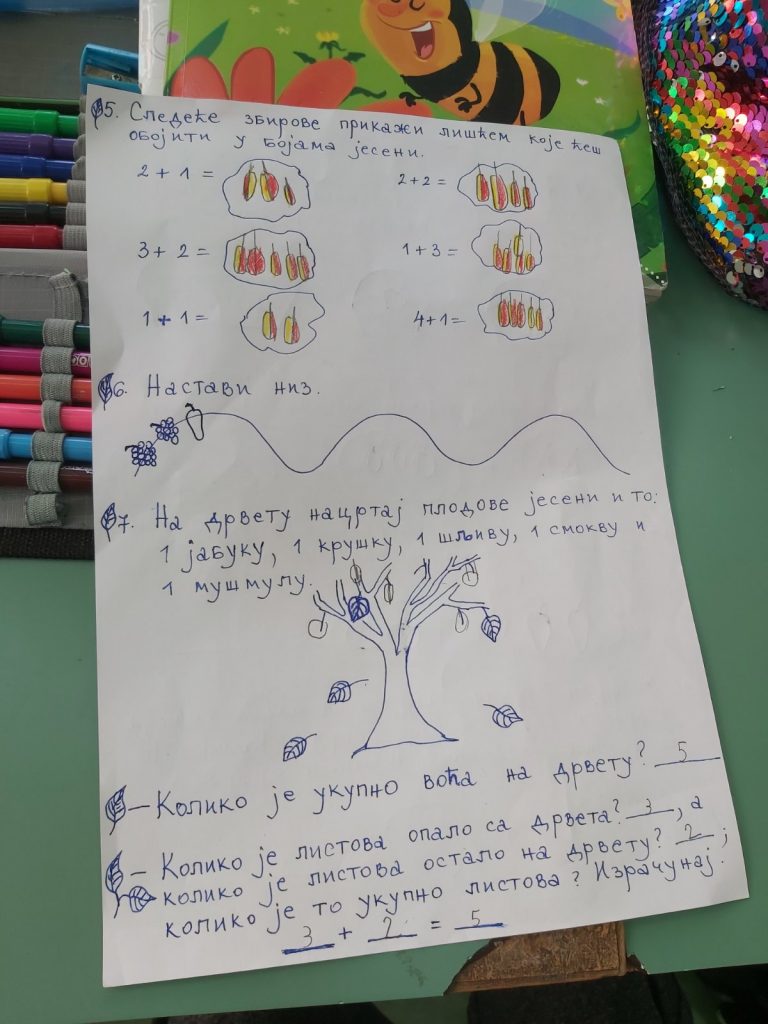 5. Следеће збирове прикажи лишћем које ћеш
обојити у бојама јесени.
2 + 1 =
2+2=
3+ 2 =
1+3=
1 + 1 =
4+1=
6. Настави низ.
7. На дрвету нацртај плодове јесени и то:
1 јабуку, 1 крушку, 1 шљиву, 1 смокву и
1 мушмулу.
– Колико је укупно воћа на дрвету? 5
– Колико је листова опало са дрвета? 3, а
колико је листова остало на дрвету? 2;
колико је то укупно листова? Израчунај.
3 + 2 = 5